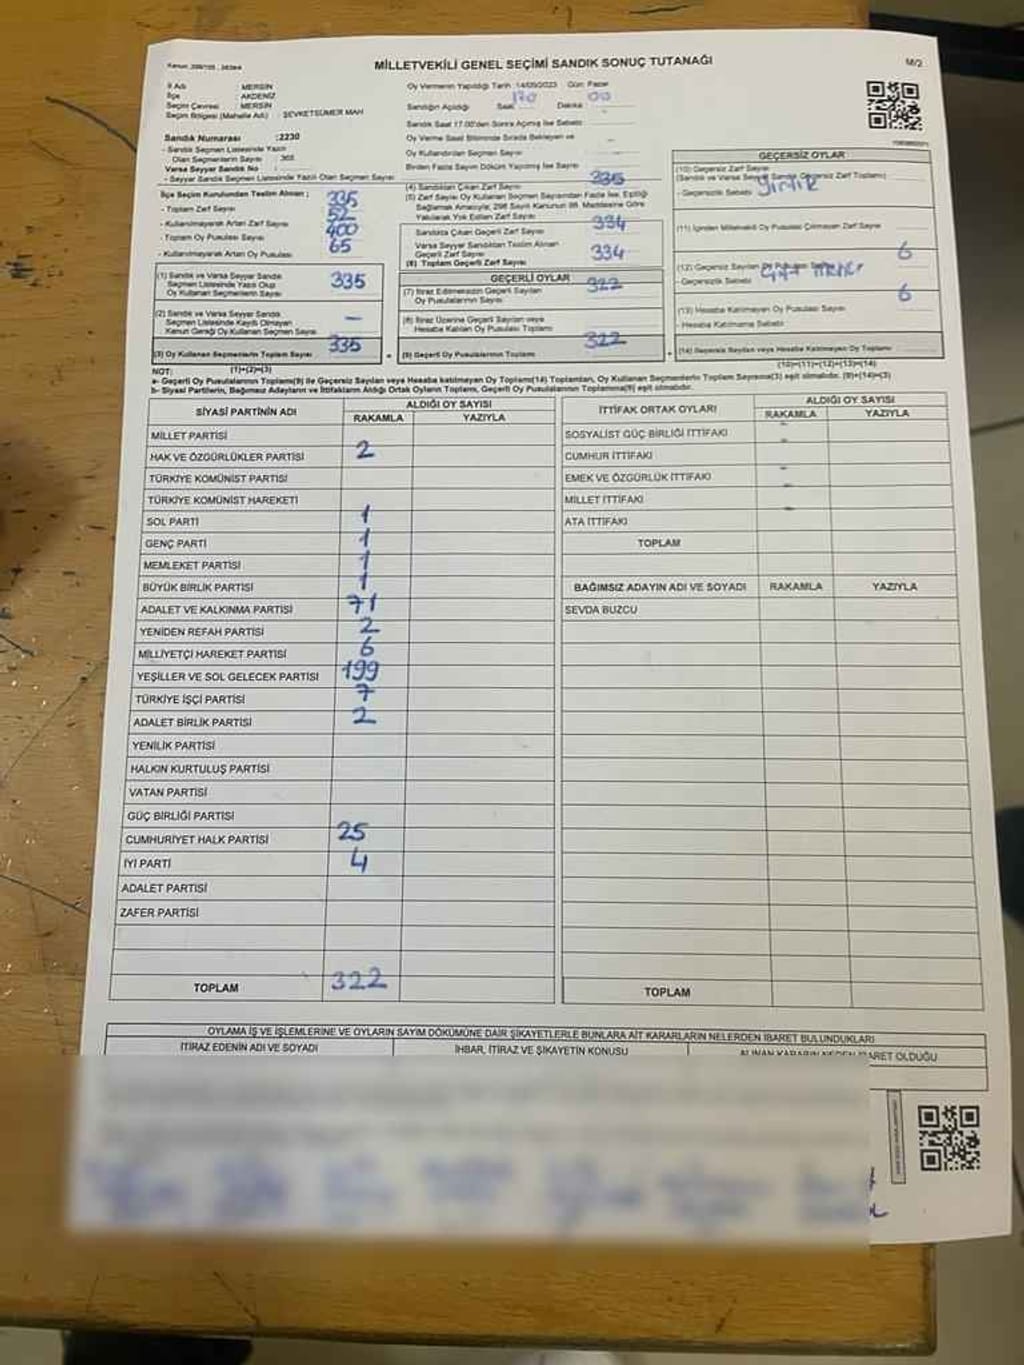 MİLLETVEKİLİ GENEL SEÇİMİ SANDIK SONUÇ TUTANAĞI
M/2
İl Adı : MERSİN
İlçe : AKDENİZ
Seçim Çevresi : MERSİN
Seçim Bölgesi (Mahalle Adı) : ŞEVKETSÜMER MAH
Sandık Numarası :2230
- Sandık Seçmen Listesinde Yazılı
Olan Seçmenlerin Sayısı
Varsa Seyyar Sandık No :
- Seyyar Sandık Seçmen Listesinde Yazılı Olan Seçmen Sayısı
Oy Vermenin Yapıldığı Tarih :14/05/2023 Gün: Pazar
Sandığın Açıldığı Saat Dakika 00
Sandık Saat 17.00'den Sonra Açılmış İse Sebebi
Oy Verme Saati Bitiminde Sırada Bekleyen ve
Oy Kullandırılan Seçmen Sayısı
Birden Fazla Sayım Döküm Yapılmış İse Sayısı
İlçe Seçim Kurulundan Teslim Alınan ;
- Toplam Zarf Sayısı 335
- Kullanılmayarak Artan Zarf Sayısı 52
- Toplam Oy Pusulası Sayısı 400
- Kullanılmayarak Artan Oy Pusulası 65
(1) Sandık ve Varsa Seyyar Sandık
Seçmen Listesinde Yazılı Olup
Oy Kullanan Seçmenlerin Sayısı 335
(2) Sandık ve Varsa Seyyar Sandık
Seçmen Listesinde Kayıtlı Olmayan
Kanun Gereği Oy Kullanan Seçmen Sayısı –
(3) Oy Kullanan Seçmenlerin Toplam Sayısı 335
(1)+(2)=(3)
(4) Sandıktan Çıkan Zarf Sayısı 335
(5) Zarf Sayısı Oy Kullanan Seçmen Sayısından Fazla İse, Eşitliği
Sağlamak Amacıyla, 298 Sayılı Kanunun 98. Maddesine Göre
Yakılarak Yok Edilen Zarf Sayısı
Sandıkta Çıkan Geçerli Zarf Sayısı 334
Varsa Seyyar Sandıktan Teslim Alınan
Geçerli Zarf Sayısı
(6) Toplam Geçerli Zarf Sayısı 334
GEÇERLİ OYLAR
(7) İtiraz Edilmeksizin Geçerli Sayılan
Oy Pusulalarının Sayısı 322
(8) İtiraz Üzerine Geçerli Sayılan veya
Hesaba Katılan Oy Pusulası Toplamı
(9) Geçerli Oy Pusulalarının Toplamı 322
GEÇERSİZ OYLAR
(10) Geçersiz Zarf Sayısı
(Sandık ve Varsa Seyyar Sandık Geçersiz Zarf Toplamı)
- Geçersizlik Sebebi yırtık
(11) İçinden Milletvekili Oy Pusulası Çıkmayan Zarf Sayısı
(12) Geçersiz Sayılan Oy Pusulası Sayısı 6
- Geçersizlik Sebebi
(13) Hesaba Katılmayan Oy Pusulası Sayısı 6
- Hesaba Katılmama Sebebi
(14) Geçersiz Sayılan veya Hesaba Katılmayan Oy Toplamı
(10)+(11)+(12)+(13)=(14)
NOT:
a- Geçerli Oy Pusulalarının Toplamı(9) ile Geçersiz Sayılan veya Hesaba katılmayan Oy Toplamı(14) Toplamları, Oy Kullanan Seçmenlerin Toplam Sayısına(3) eşit olmalıdır. (9)+(14)=(3)
b- Siyasi Partilerin, Bağımsız Adayların ve İttifakların Aldığı Ortak Oyların Toplamı, Geçerli Oy Pusulalarının Toplamına(9) eşit olmalıdır.
SİYASİ PARTİNİN ADI ALDIĞI OY SAYISI
RAKAMLA YAZIYLA
MİLLET PARTİSİ
HAK VE ÖZGÜRLÜKLER PARTİSİ 2
TÜRKİYE KOMÜNİST PARTİSİ
TÜRKİYE KOMÜNİST HAREKETİ
SOL PARTİ 1
GENÇ PARTİ 1
MEMLEKET PARTİSİ 1
BÜYÜK BİRLİK PARTİSİ 1
ADALET VE KALKINMA PARTİSİ 71
YENİDEN REFAH PARTİSİ 2
MİLLİYETÇİ HAREKET PARTİSİ 6
YEŞİLLER VE SOL GELECEK PARTİSİ 199
TÜRKİYE İŞÇİ PARTİSİ 7
ADALET BİRLİK PARTİSİ 2
YENİLİK PARTİSİ
HALKIN KURTULUŞ PARTİSİ
VATAN PARTİSİ
GÜÇ BİRLİĞİ PARTİSİ
CUMHURİYET HALK PARTİSİ 25
İYİ PARTİ 4
ADALET PARTİSİ
ZAFER PARTİSİ
TOPLAM 322
İTTİFAK ORTAK OYLARI ALDIĞI OY SAYISI
RAKAMLA YAZIYLA
SOSYALİST GÜÇ BİRLİĞİ İTTİFAKI -
CUMHUR İTTİFAKI
EMEK VE ÖZGÜRLÜK İTTİFAKI -
MİLLET İTTİFAKI -
ATA İTTİFAKI -
TOPLAM
BAĞIMSIZ ADAYIN ADI VE SOYADI RAKAMLA YAZIYLA
SEVDA BUZCU
TOPLAM
OYLAMA İŞ VE İŞLEMLERİNE VE OYLARIN SAYIM DÖKÜMÜNE DAİR ŞİKAYETLERLE BUNLARA AİT KARARLARIN NELERDEN İBARET BULUNDUKLARI
İTİRAZ EDENİN ADI VE SOYADI İHBAR, İTİRAZ VE ŞİKAYETİN KONUSU ALINAN KARARIN NEDEN İBARET OLDUĞU